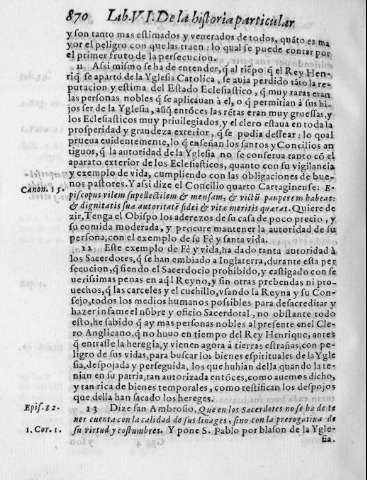 870 Lib. VI. De la historia particular
y son tanto mas estimados y venerados de todos, quāto es ma
yor el peligro con que las traen: lo qual se puede contar por
el primer fruto de la persecucion.
11 Assi mismo se ha de entender, q̄ al tiēpo q̄ el Rey Hen-
riq̄ se apartó de la Yglesia Catolica, se auia perdido tāto la re-
putacion y estima del Estado Eclesiastico, q̄ muy raras eran
las personas nobles q̄ se aplicauan à el, o q̄ permitian à sus hi-
jos ser de la Yglesia, aūq̄ entōces las rētas eran muy gruessas, y
los Eclesiasticos muy priuilegiados, y el clero estaua en toda la
prosperidad y grandeza exterior, q̄ se podia dessear: lo qual
prueua euidentemente, lo q̄ enseñan los santos y Concilios an
tiguos, q̄ la autoridad de la Yglesia no se conserua tanto cō el
aparato exterior de los Eclesiasticos, quanto con su vigilancia
y exemplo de vida, cumpliendo con las obligaciones de bue-
nos pastores. Y assi dize el Concilio quarto Cartaginense: E-
Canon. 15. piscopus vilem supellectilem & mensam, & victū pauperem habeat:
& dignitatis suæ autoritatē fidei & vitæ meritis quærat. Quiere de
zir, Tenga el Obispo los aderezos de su casa de poco precio, y
su comida moderada, y procure mantener la autoridad de su
persona, con el exemplo de su Fè y santa vida.
12 Este exemplo de Fè y vida, ha dado tanta autoridad à
los Sacerdotes, q̄ se han embiado a Inglaterra, durante esta per
secucion, q̄ siendo el Sacerdocio prohibido, y castigado con se
uerissimas penas en aq̄l Reyno, y sin otras prebendas ni pro-
uechos, q̄ las carceles y el cuchillo, vsando la Reyna y su Con-
sejo, todos los medios humanos possibles para desacreditar y
hazer infame el nōbre y oficio Sacerdotal, no obstante todo
esto, he sabido q̄ ay mas personas nobles al presente en el Cle-
ro Anglicano, q̄ no huuo en tiempo del Rey Henrique, antes
q̄ entrasse la heregia, y vienen agora à tierras estrañas, con pe-
ligro de sus vidas, para buscar los bienes espirituales de la Ygle
sia, despojada y perseguida, los que huhian della quando la te-
nian en su patria, tan autorizada entōces, como auemos dicho,
y tan rica de bienes temporales, como testifican los despojos
que della han sacado los hereges.
Epis. 82. 13 Dize san Ambrosio, Que en los Sacerdotes no se ha de te
ner cuenta con la calidad de sus linages, sino con la prerogatiua de
1. Cor. 1. su virtud y costumbres. Y pone S. Pablo por blason de la Ygle-
sia,